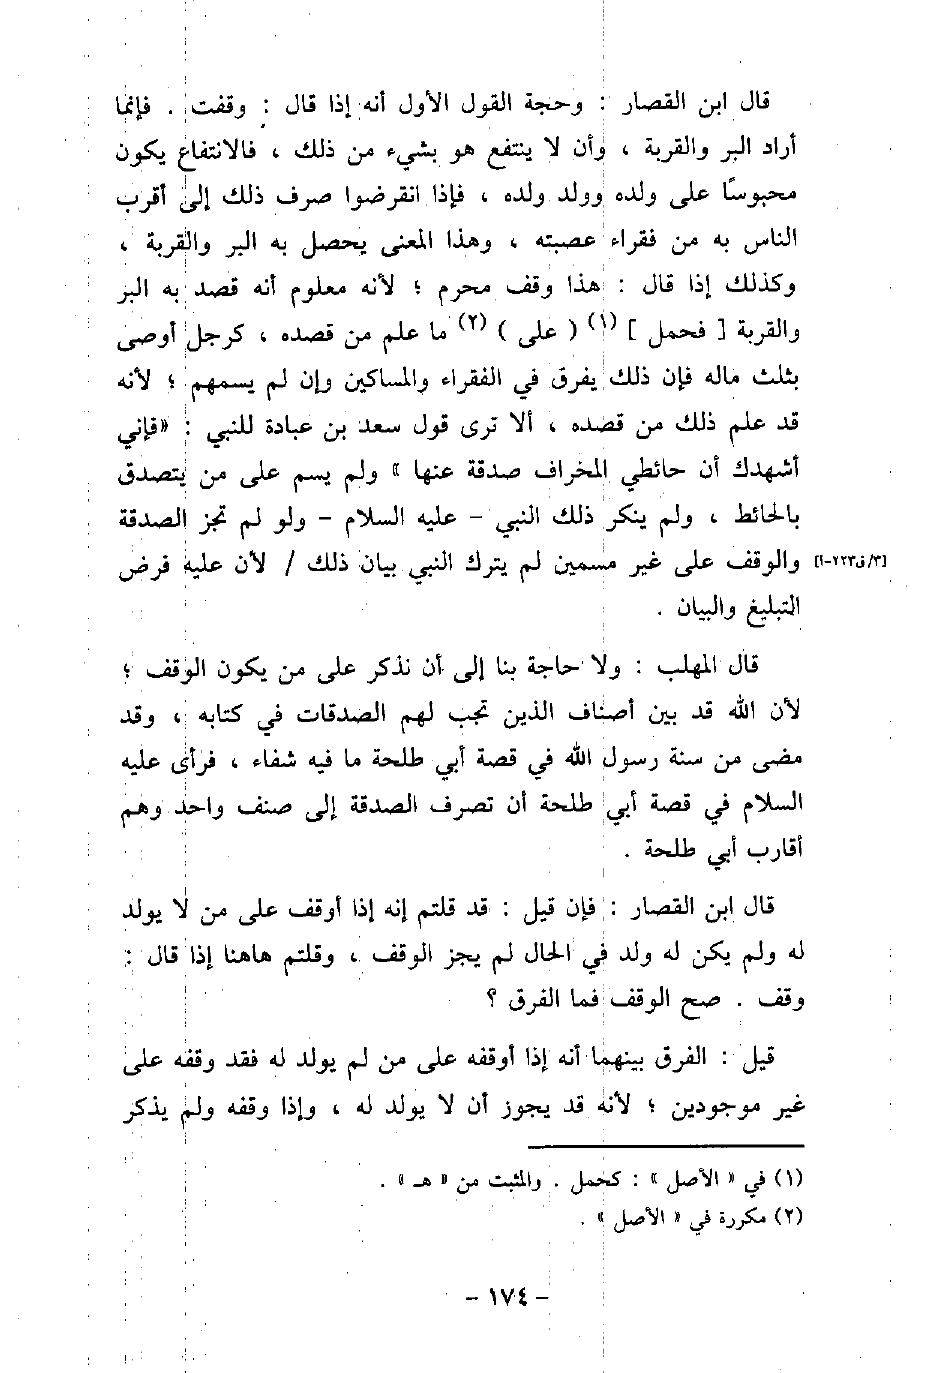 قال ابن القصار : وحجة القول الأول أنه إذا قال : وقفت . فإنما
أراد البر والقربة ، وأن لا ينتفع هو بشيء من ذلك ، فالانتفاع يكون
محبوسًا على ولده وولد ولده ، فإذا انقرضوا صرف ذلك إلى أقرب
الناس به من فقراء عصبته ، وهذا المعنى يحصل به البر والقربة ،
وكذلك إذا قال : هذا وقف محرم ؛ لأنه معلوم أنه قصد به البر
والقربة [ فحمل ] (١) ( على ) (٢) ما علم من قصده ، كرجل أوصى
بثلث ماله فإن ذلك يفرق في الفقراء والمساكين وإن لم يسمهم ؛ لأنه
قد علم ذلك من قصده ، ألا ترى قول سعد بن عبادة للنبي : «فإني
أشهدك أن حائطي المخراف صدقة عنها » ولم يسم على من يتصدق
بالحائط ، ولم ينكر ذلك النبي - عليه السلام - ولو لم تجز الصدقة
والوقف على غير مسمين لم يترك النبي بيان ذلك / لأن عليه فرض [٣/ق٢٢٣-أ]
التبليغ والبيان .
قال المهلب : ولا حاجة بنا إلى أن نذكر على من يكون الوقف ؛
لأن الله قد بين أصناف الذين تجب لهم الصدقات في كتابه ، وقد
مضى من سنة رسول الله في قصة أبي طلحة ما فيه شفاء ، فرأى عليه
السلام في قصة أبي طلحة أن تصرف الصدقة إلى صنف واحد وهم
أقارب أبي طلحة .
قال ابن القصار : فإن قيل : قد قلتم إنه إذا أوقف على من لا يولد
له ولم يكن له ولد في الحال لم يجز الوقف ، وقلتم هاهنا إذا قال :
وقف . صح الوقف فما الفرق ؟
قيل : الفرق بينهما أنه إذا أوقفه على من لم يولد له فقد وقفه على
غير موجودين ؛ لأنه قد يجوز أن لا يولد له ، وإذا وقفه ولم يذكر
(١) في « الأصل » : كحمل . والمثبت من « هـ » .
(٢) مكررة في « الأصل » .
- ١٧٤ -